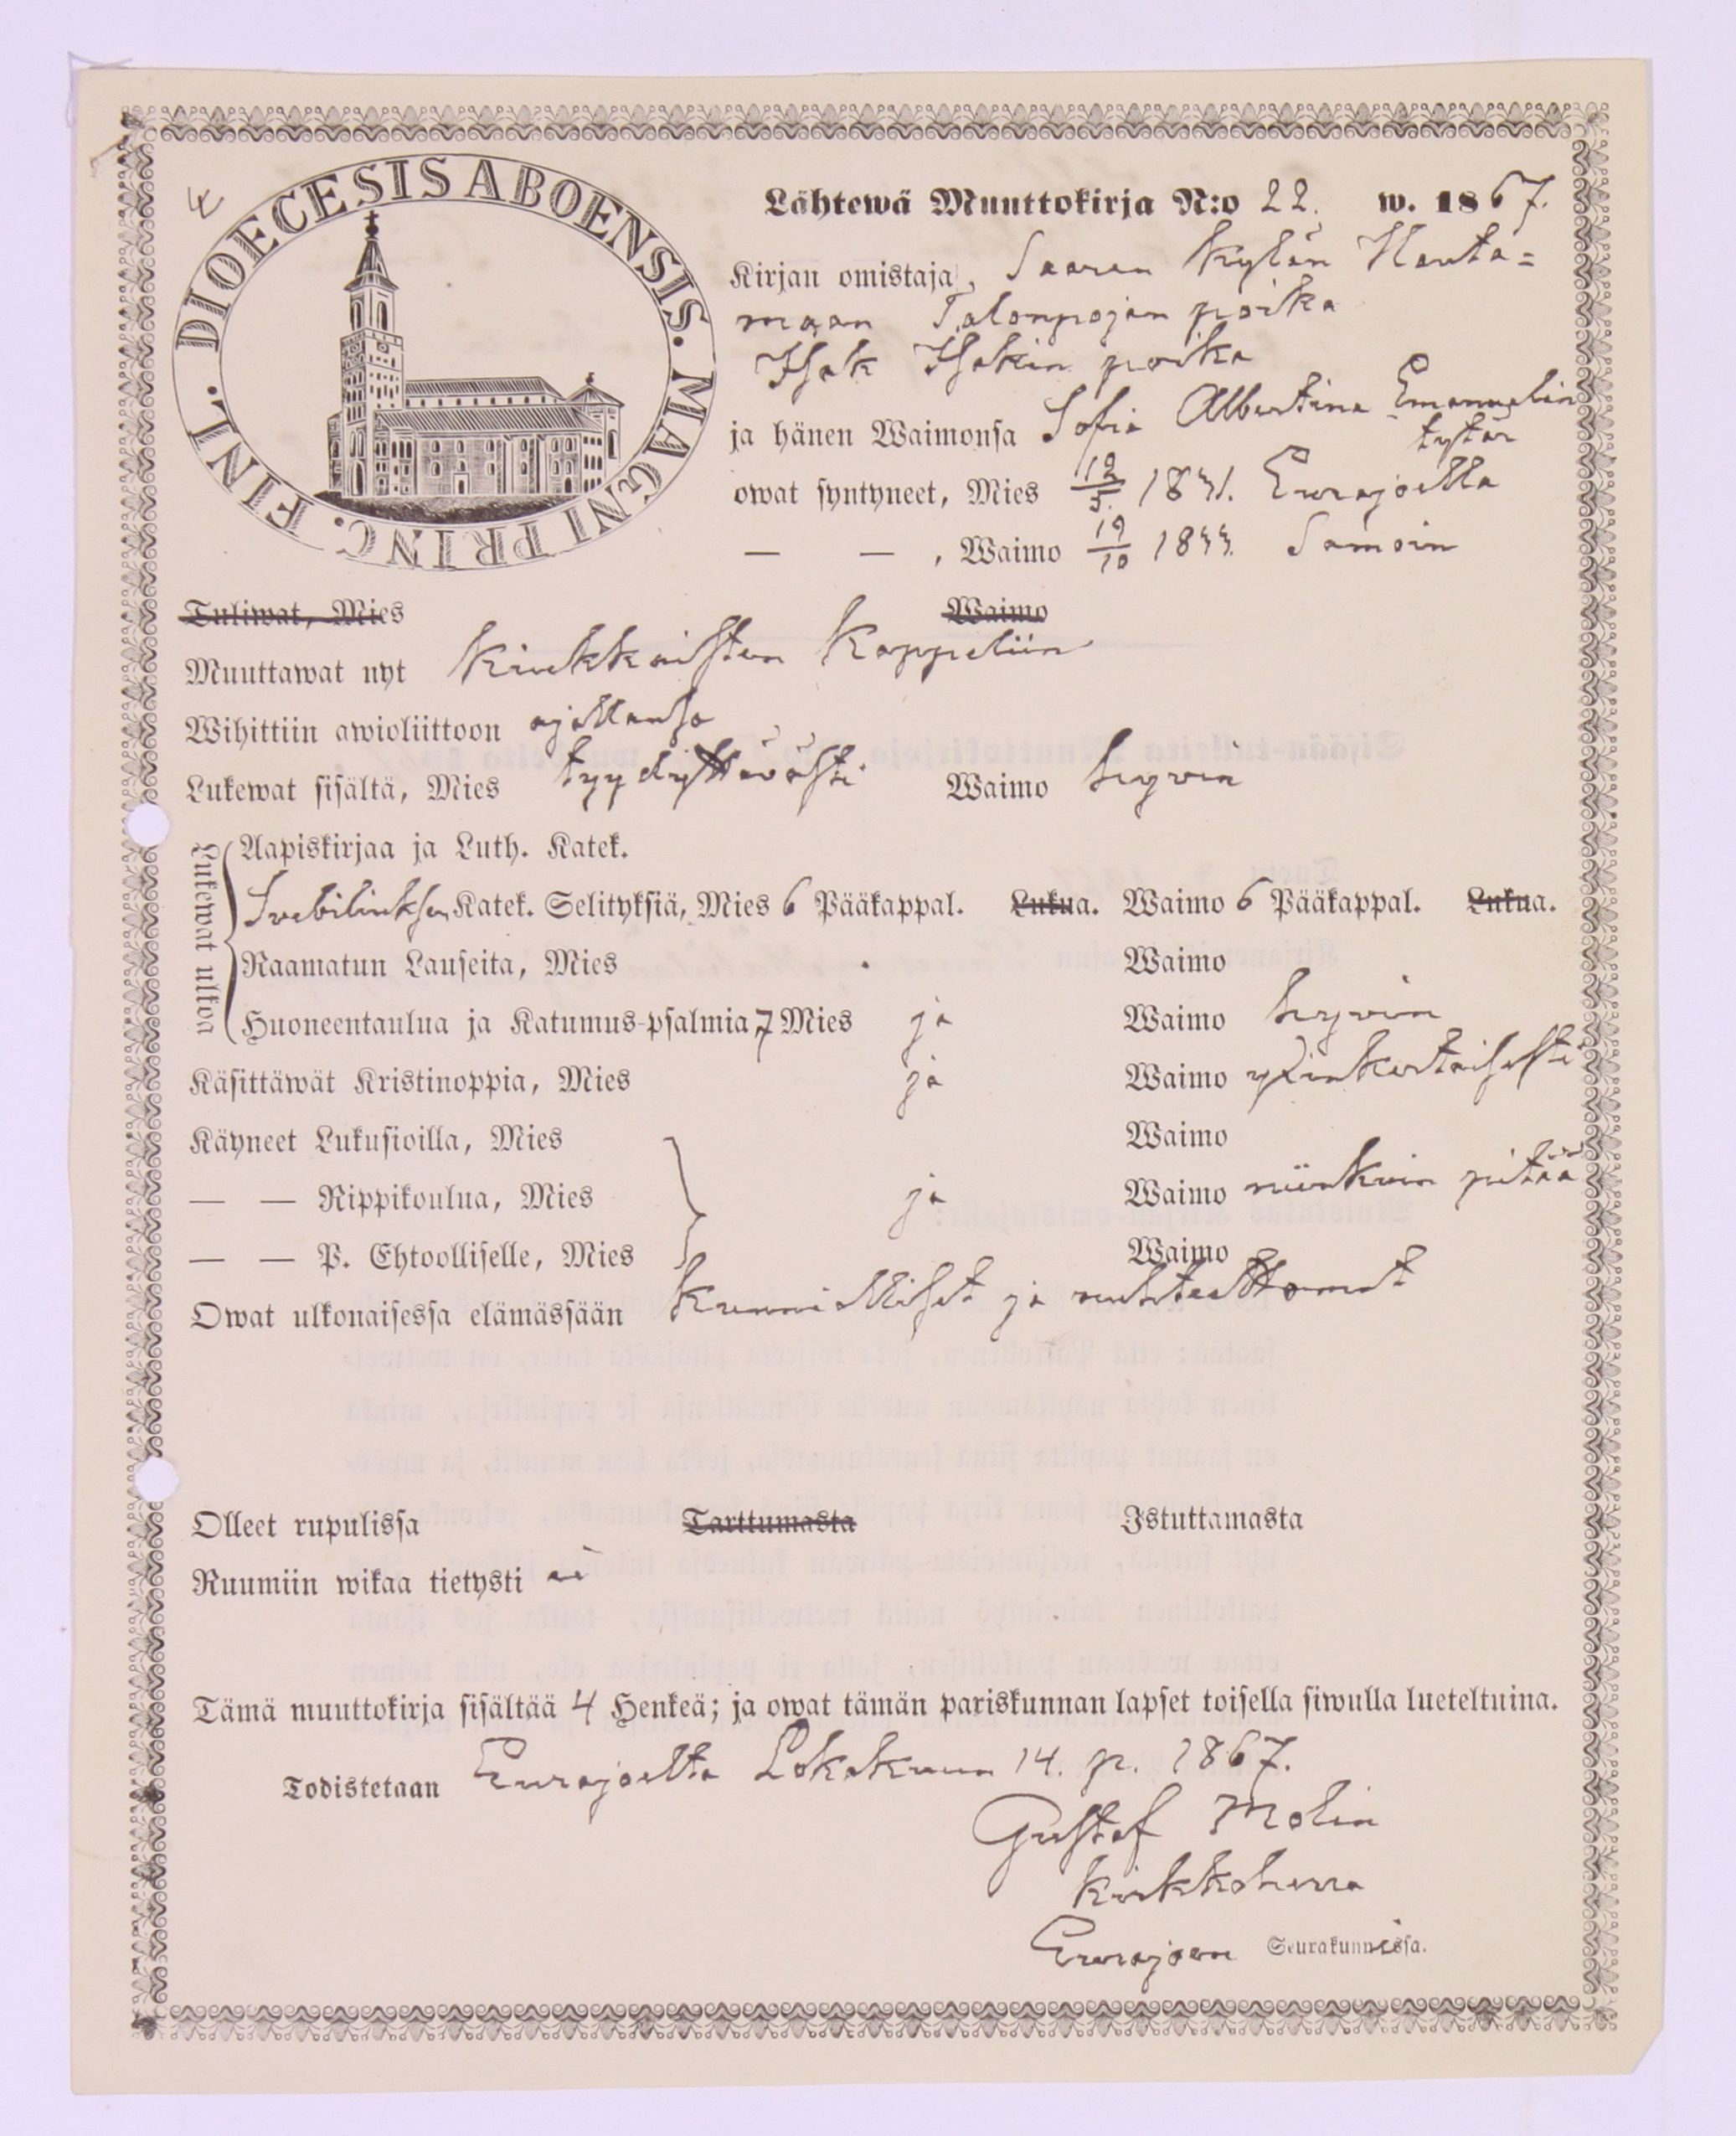 DIOECESIS ABOENSIS. MAGNI PRINC. FINL.
Lähtewä Muuttokirja N:o 22. w. 1867.
Kirjan omistaja, Saaren Kylän Hauta=
maan Talonpojan poika
Isak Isakin poika
ja hänen Waimonsa Sofia Albertina Emanuelin
tytär
owat syntyneet, Mies 12/5. 1841. Eurajoella
— — , Waimo 19/10 1844. Samoin
Tuliwat, Mies Waimo
Muuttawat nyt Kiukkaisten Kappeliin
Wihittiin awioliittoon ajallansa
Lukewat sisältä, Mies tyydyttävästi Waimo hyvin
Lukewat ulkoa
Aapiskirjaa ja Luth. Katek.
Svebiliuksen Katek. Selityksiä, Mies 6 Pääkappal. Lukua. Waimo 6 Pääkappal. Lukua.
Raamatun Lauseita, Mies Waimo
Huoneentaulua ja Katumus-psalmia 7 Mies ja Waimo hyvin
Käsittäwät Kristinoppia, Mies ja Waimo yxinkertaisesti
Käyneet Lukusioilla, Mies Waimo
— — Rippikoulua, Mies ja Waimo niinkuin pitää
— — P. Ehtoolliselle, Mies Waimo
Owat ulkonaisessa elämässään Kunnialliset ja nuhteettomat
Olleet rupulissa Tarttumasta Istuttamasta
Ruumiin wikaa tietysti ei
Tämä muuttokirja sisältää 4 Henkeä; ja owat tämän pariskunnan lapset toisella siwulla lueteltuina.
Todistetaan Eurajoelta Lokakuun 14. p. 1867.
Gustaf Molin
Kirkkoherra
Eurajoen Seurakunnissa.